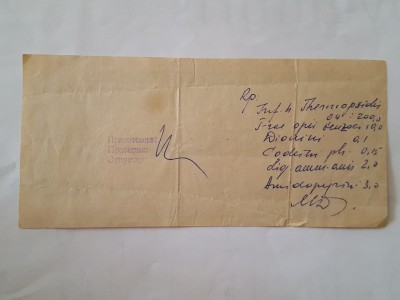 Rp
Inf. h. Thermopsidis
0,4 : 200,0
T-rae opii benzoic 10,0
Dionini 0,1
Codeini ph. 0,15
Liq. amm. anis 2,0
Amidopyrini 3,0
MD